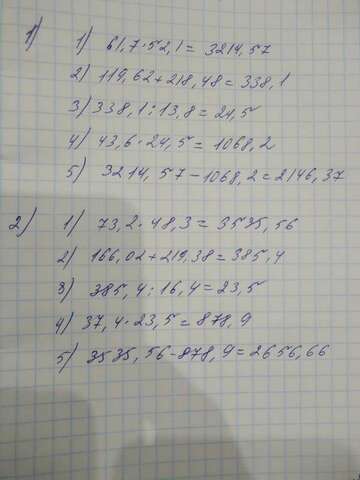 1)
1) 61,7·52,1=3214,57
2) 119,62+218,48=338,1
3) 338,1:13,8=24,5
4) 43,6·24,5=1068,2
5) 3214,57-1068,2=2146,37
2) 1) 73,2·48,3=3535,56
2) 166,02+219,38=385,4
3) 385,4:16,4=23,5
4) 37,4·23,5=878,9
5) 3535,56-878,9=2656,66